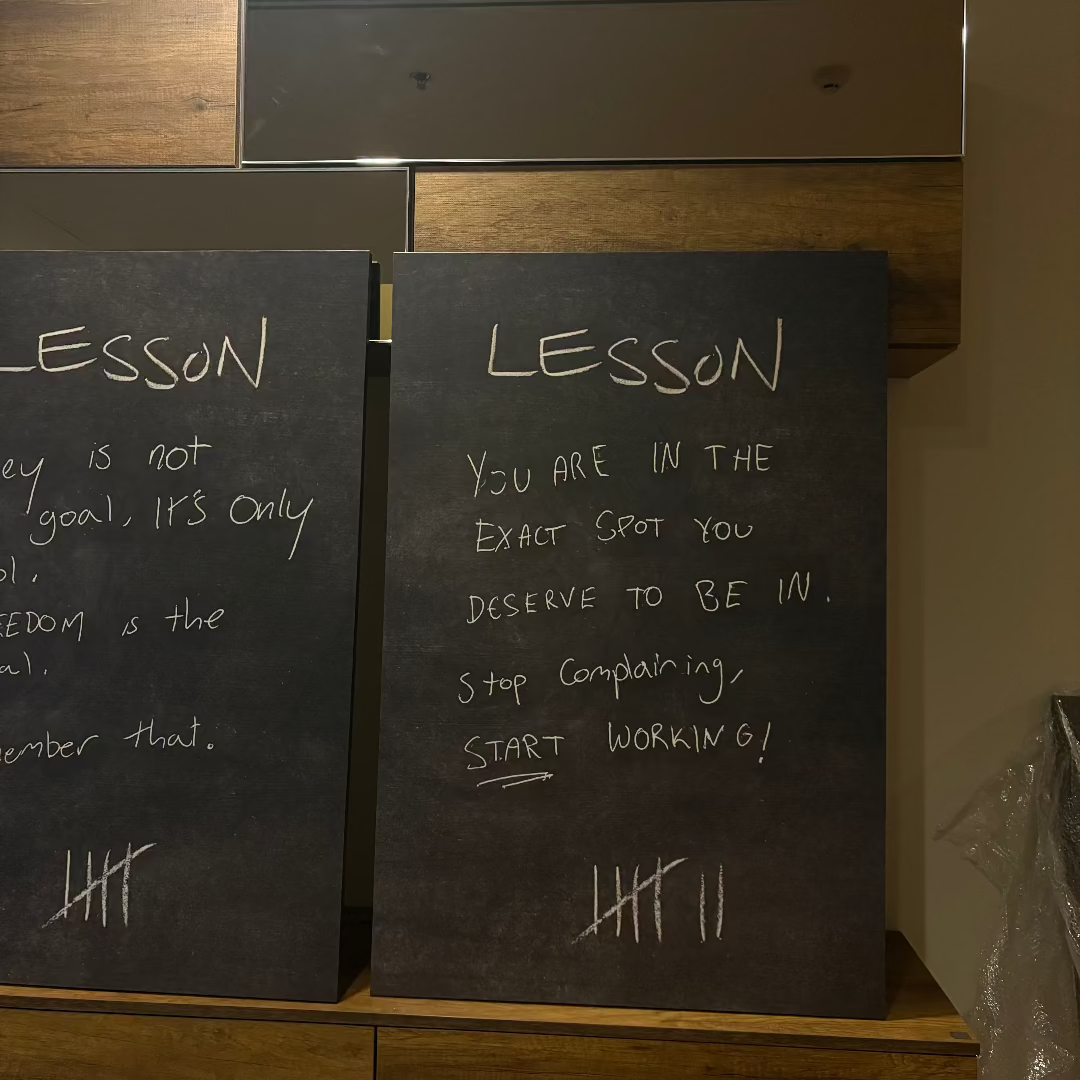 LESSON
ey is not
goal, It's Only
ol.
EEDOM is the
al.
ember that.
LESSON
YOU ARE IN THE
EXACT SPOT YOU
DESERVE TO BE IN.
Stop Complaining,
START WORKING!